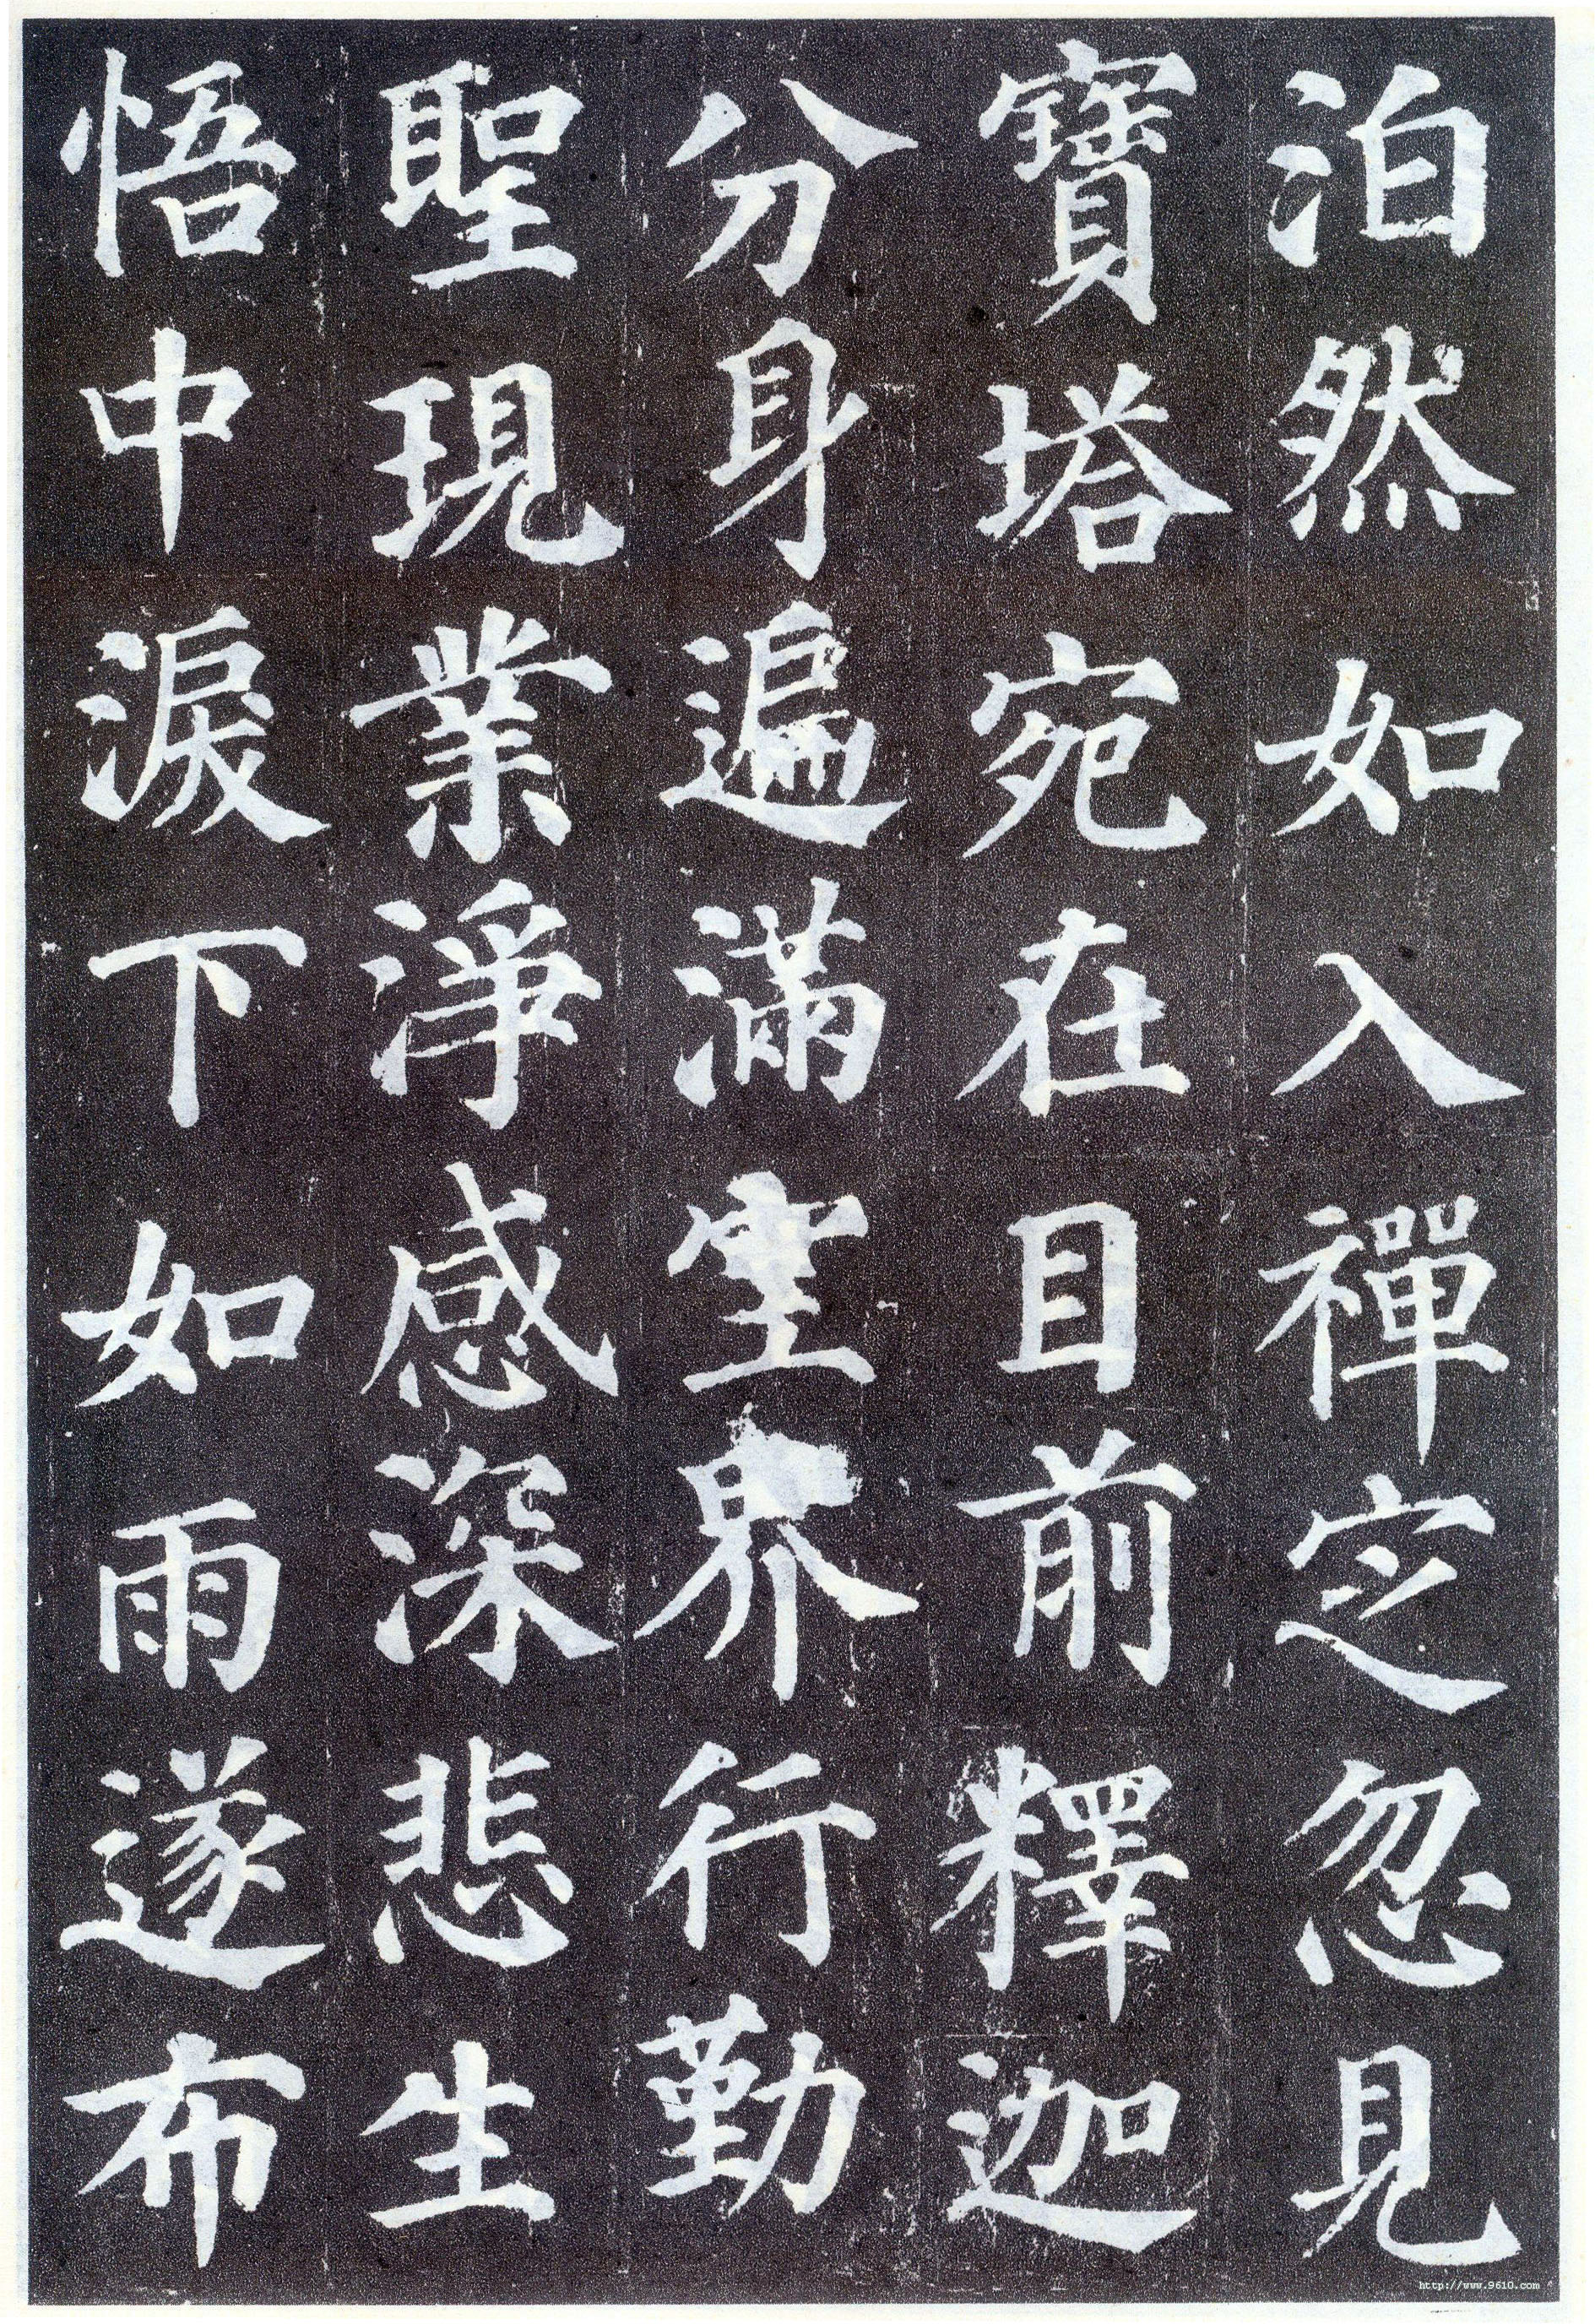 泊然如入禪定忽見
寶塔宛在目前釋迦
分身遍滿空界行勤
聖現業淨感深悲生
悟中淚下如雨遂布
http://www.9610.com